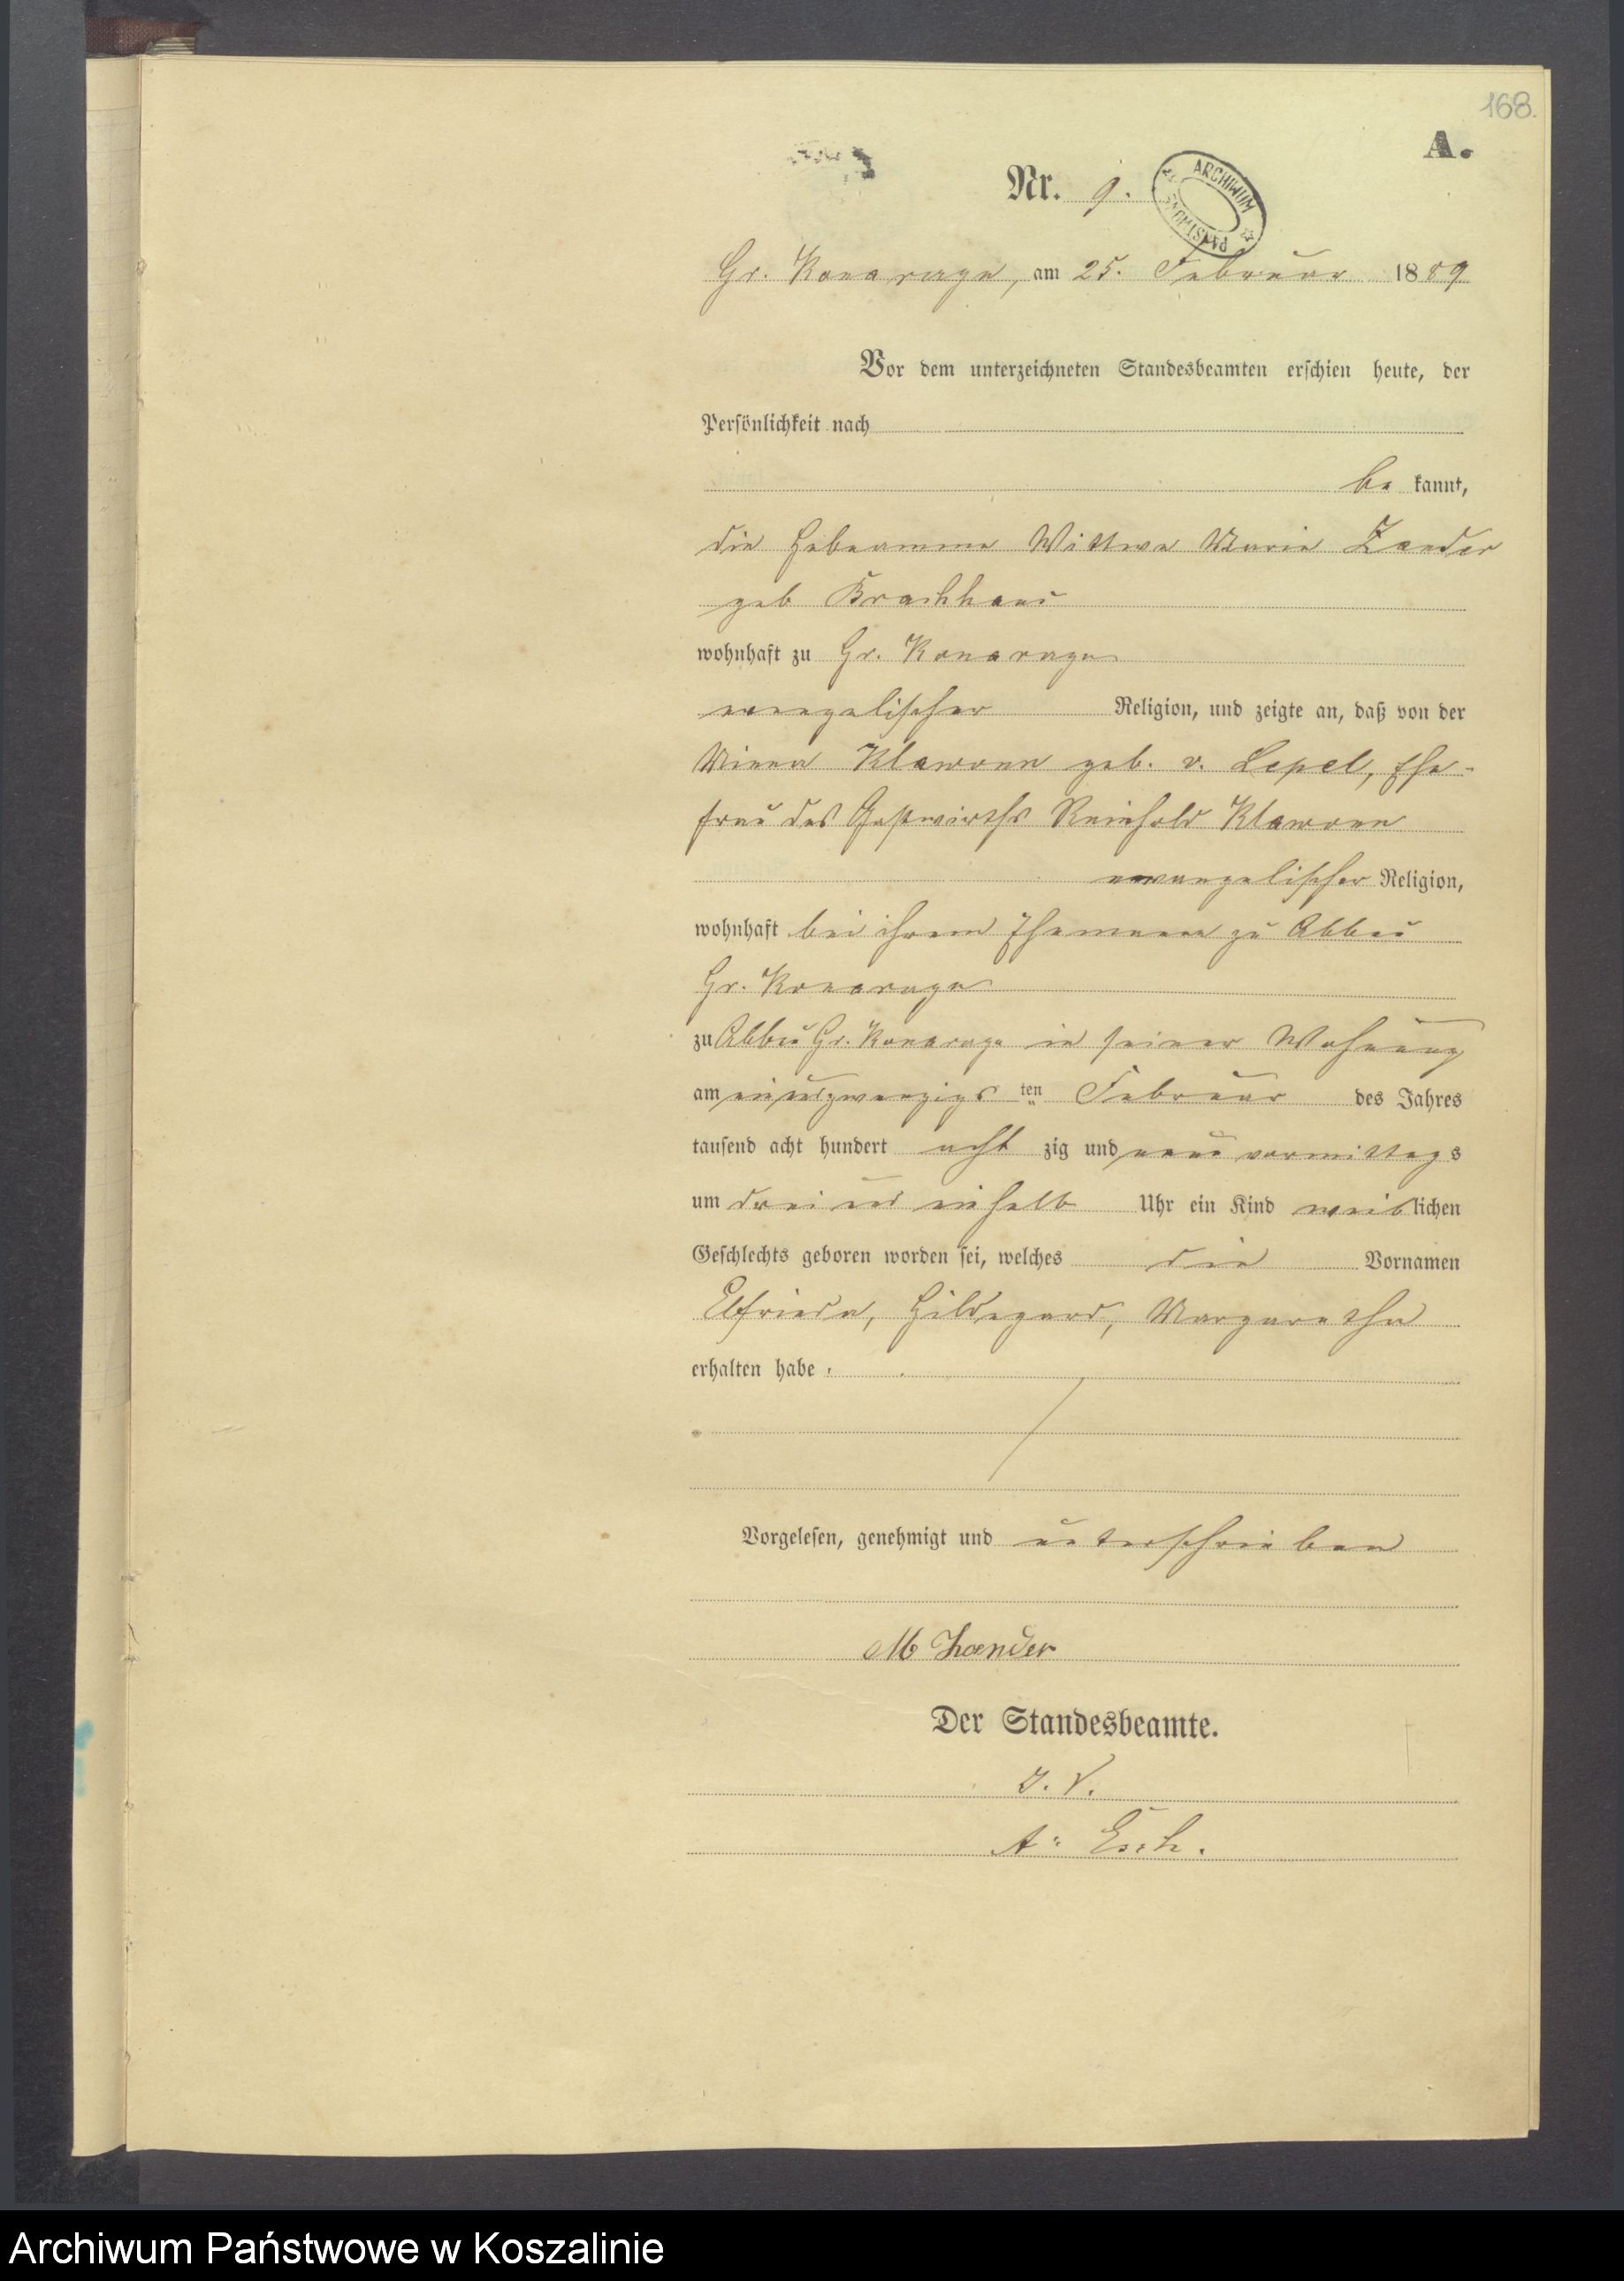 168.
A.
Nr. 9.
ARCHIWUM PAŃSTWOWE
Gr. Konarzyn, am 25. Februar 1889
Vor dem unterzeichneten Standesbeamten erschien heute, der
Persönlichkeit nach
be kannt,
die Hebeamme Wittwe Marie Zander
geb
wohnhaft zu Gr. Konarzyn
evangelischer Religion, und zeigte an, daß von der
Minna Klawonn geb. v. Lepel, Ehe-
frau des Gastwirths Reinhold Klawonn
evangelischer Religion,
wohnhaft bei ihrem Ehemann zu Abbau
Gr. Konarzyn
zu Abbau Gr. Konarzyn in seiner Wohnung
am einundzwanzigs ten Februar des Jahres
tausend acht hundert acht zig und neun vormittags
um drei und einhalb Uhr ein Kind weiblichen
Geschlechts geboren worden sei, welches die Vornamen
Elfriede, Hildegard, Margarethe
erhalten habe.
Vorgelesen, genehmigt und unterschrieben
M Zander
Der Standesbeamte.
I. V.
A. Esch.
Archiwum Państwowe w Koszalinie